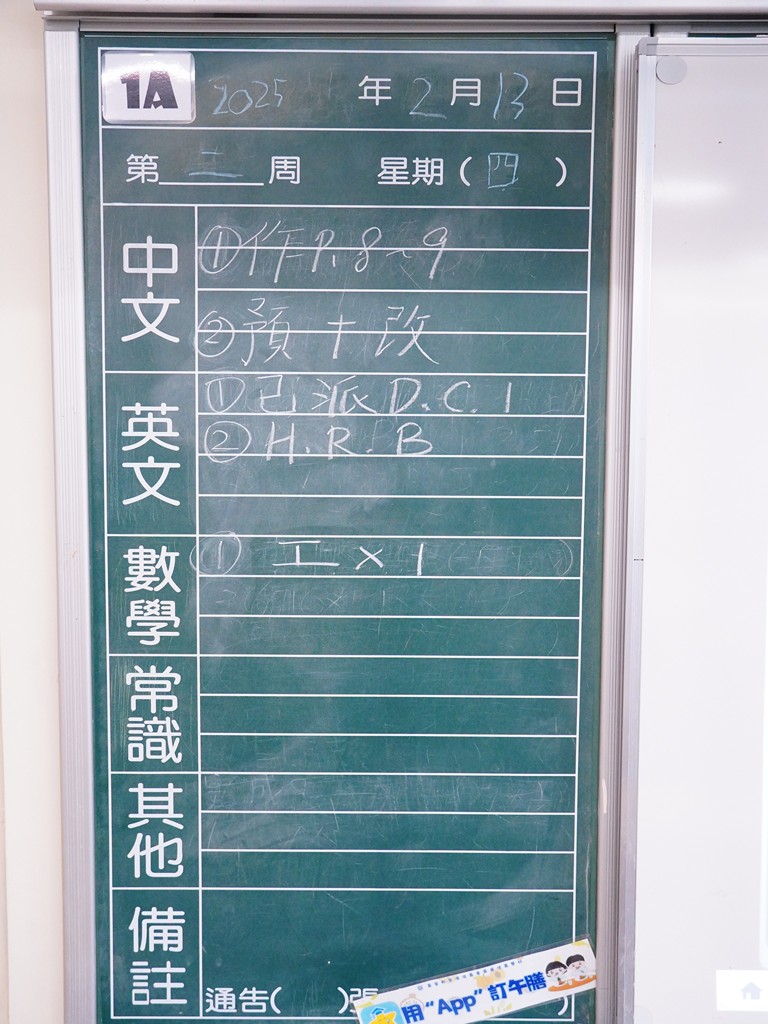 1A 2025 年 2 月 13 日
第 二 周 星期 ( 四 )
中文
① 作 P. 8~9
② 預 + 改
英文
① 已派 D.C. 1
② H.R.B
數學
① 工 × 1
常識
其他
備註
通告( )張
用“App”訂午膳
)